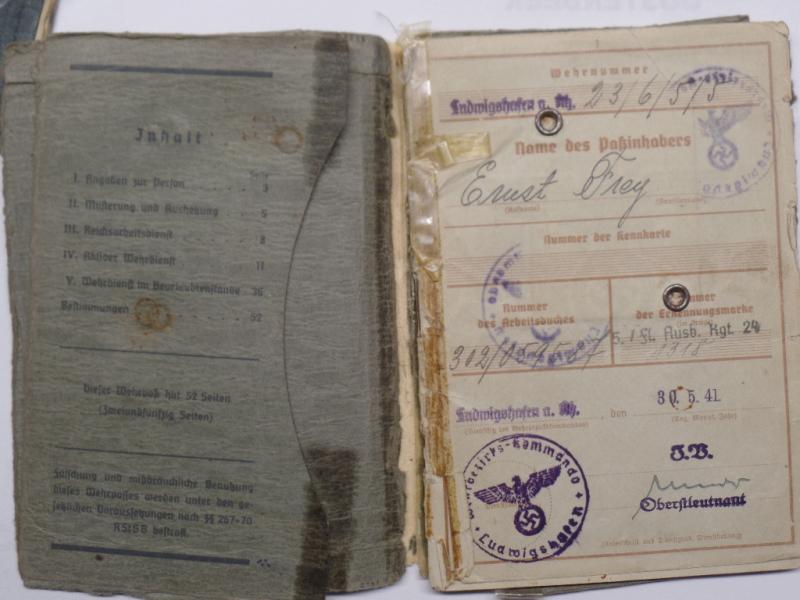 Inhalt
Seite
I. Angaben zur Person . . 3
II. Musterung und Aushebung . . 5
III. Reichsarbeitsdienst . . 8
IV. Aktiver Wehrdienst . . 11
V. Wehrdienst im Beurlaubtenstande . 36
Bestimmungen . . 52
Dieser Wehrpaß hat 52 Seiten
(Zweiundfünfzig Seiten)
Fälschung und mißbräuchliche Benutzung
dieses Wehrpasses werden unter den ge-
setzlichen Voraussetzungen nach §§ 267-70
RStGB bestraft.
1
Wehrnummer
Ludwigshafen a. Rh. 23/6/5/5
Name des Paßinhabers
Ernst Frey
(Rufname) (Familienname)
Nummer der Kennkarte
Nummer
des Arbeitsbuches
Nummer
der Erkennungsmarke
5. / Fl. Ausb. Rgt. 24
1318
Ludwigshafen a. Rh. , den 30. 5. 41
(Tag, Monat, Jahr)
J.V.
Oberstleutnant
Wehrbezirks-Kommando
Ludwigshafen